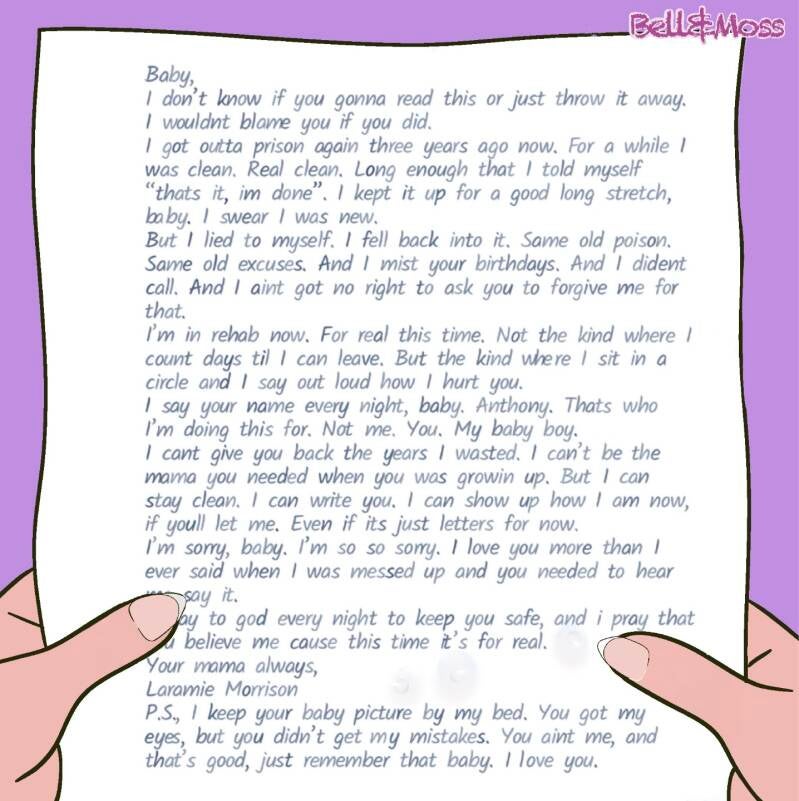 Bell&Moss
Baby,
I don't know if you gonna read this or just throw it away.
I wouldnt blame you if you did.
I got outta prison again three years ago now. For a while I
was clean. Real clean. Long enough that I told myself
"thats it, im done". I kept it up for a good long stretch,
baby. I swear I was new.
But I lied to myself. I fell back into it. Same old poison.
Same old excuses. And I mist your birthdays. And I dident
call. And I aint got no right to ask you to forgive me for
that.
I'm in rehab now. For real this time. Not the kind where I
count days til I can leave. But the kind where I sit in a
circle and I say out loud how I hurt you.
I say your name every night, baby. Anthony. Thats who
I'm doing this for. Not me. You. My baby boy.
I cant give you back the years I wasted. I can't be the
mama you needed when you was growin up. But I can
stay clean. I can write you. I can show up how I am now,
if youll let me. Even if its just letters for now.
I'm sorry, baby. I'm so so sorry. I love you more than I
ever said when I was messed up and you needed to hear
say it.
to god every night to keep you safe, and i pray that
believe me cause this time it's for real.
Your mama always,
Laramie Morrison
P.S., I keep your baby picture by my bed. You got my
eyes, but you didn't get my mistakes. You aint me, and
that's good, just remember that baby. I love you.